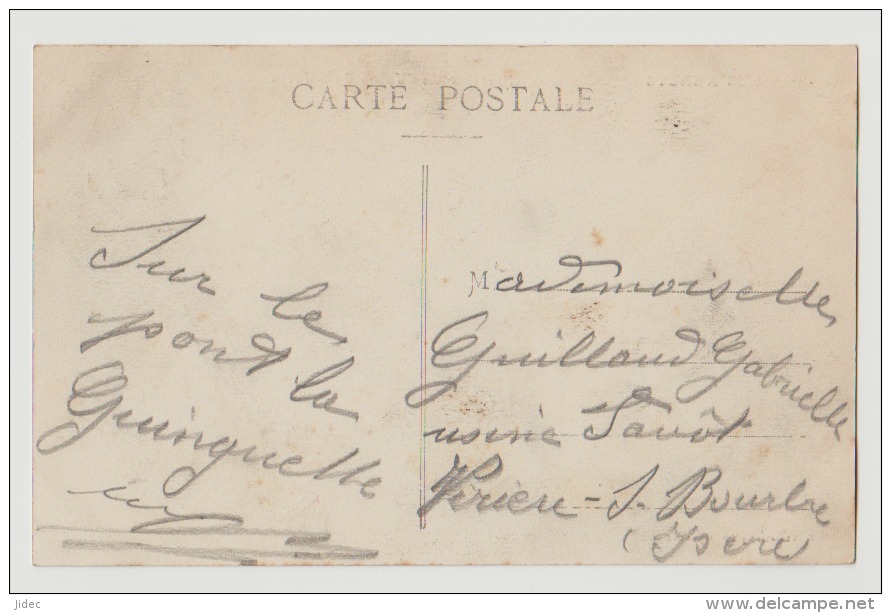 CARTE POSTALE
Sur le
pont la
Guinguette
Mademoiselle
Guilland Gabrielle
usine Savôt
S. Bourbre
(Isere)
Jidec
www.delcampe.net